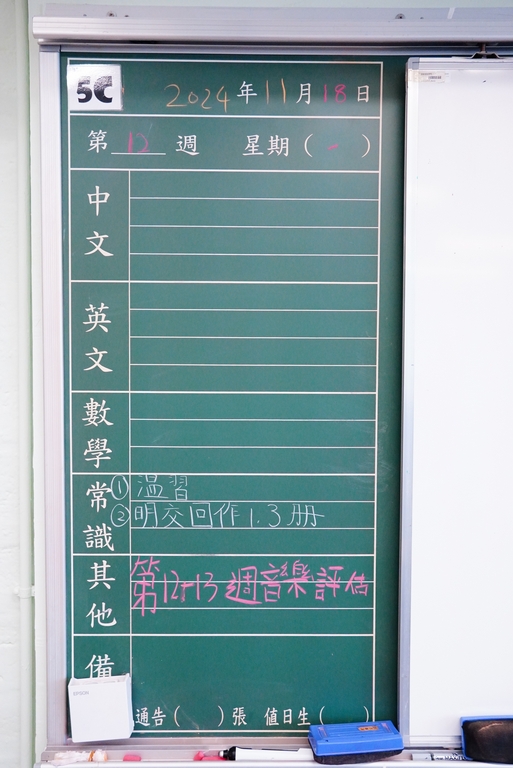 5C 2024年11月18日
第 12 週 星期(一)
中文
英文
數學
常識
① 溫習
② 明交回作1.3册
其他
第12-13週音樂評估
備
EPSON
通告( )張 值日生( )